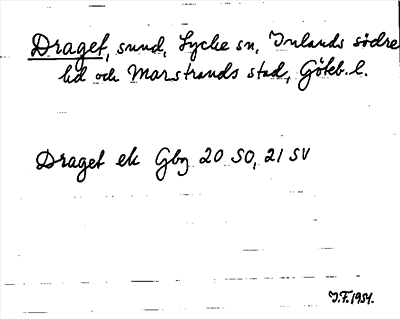 Draget, sund, Lycke sn, Inlands södre
hd och Marstrands stad, Göteb. l.
Draget ek Gbg 20 SO, 21 SV
J.F. 1954.